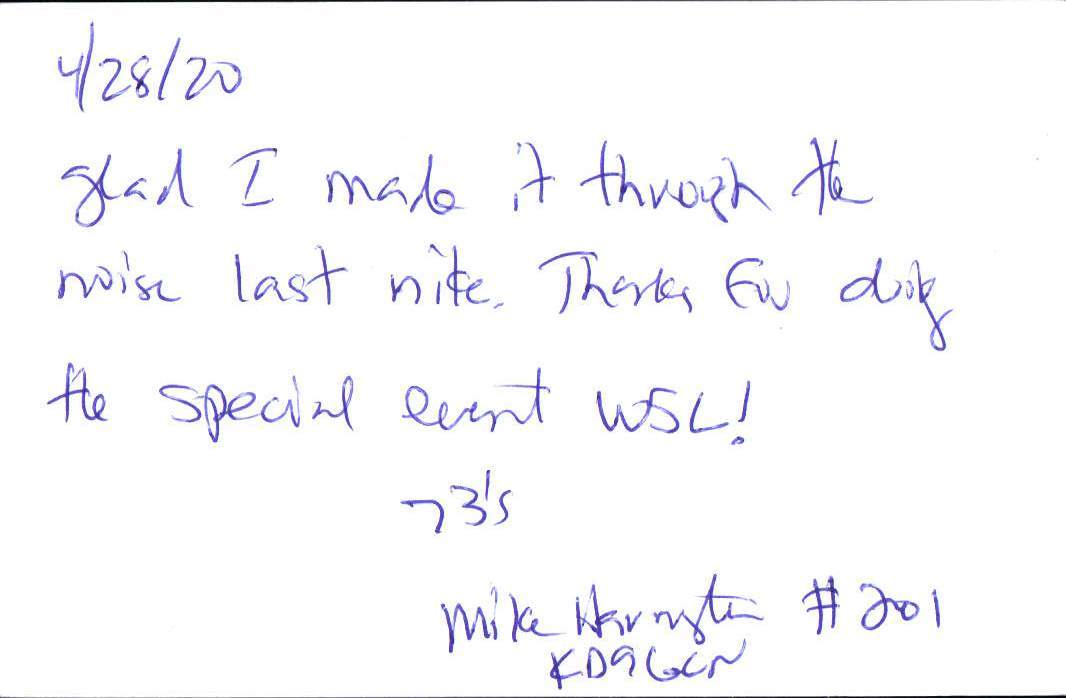 4/28/20
glad I made it through the
noise last nite. Thanks for doing
the special event W5L!
73's
Mike Harrington #201
KD9GCN